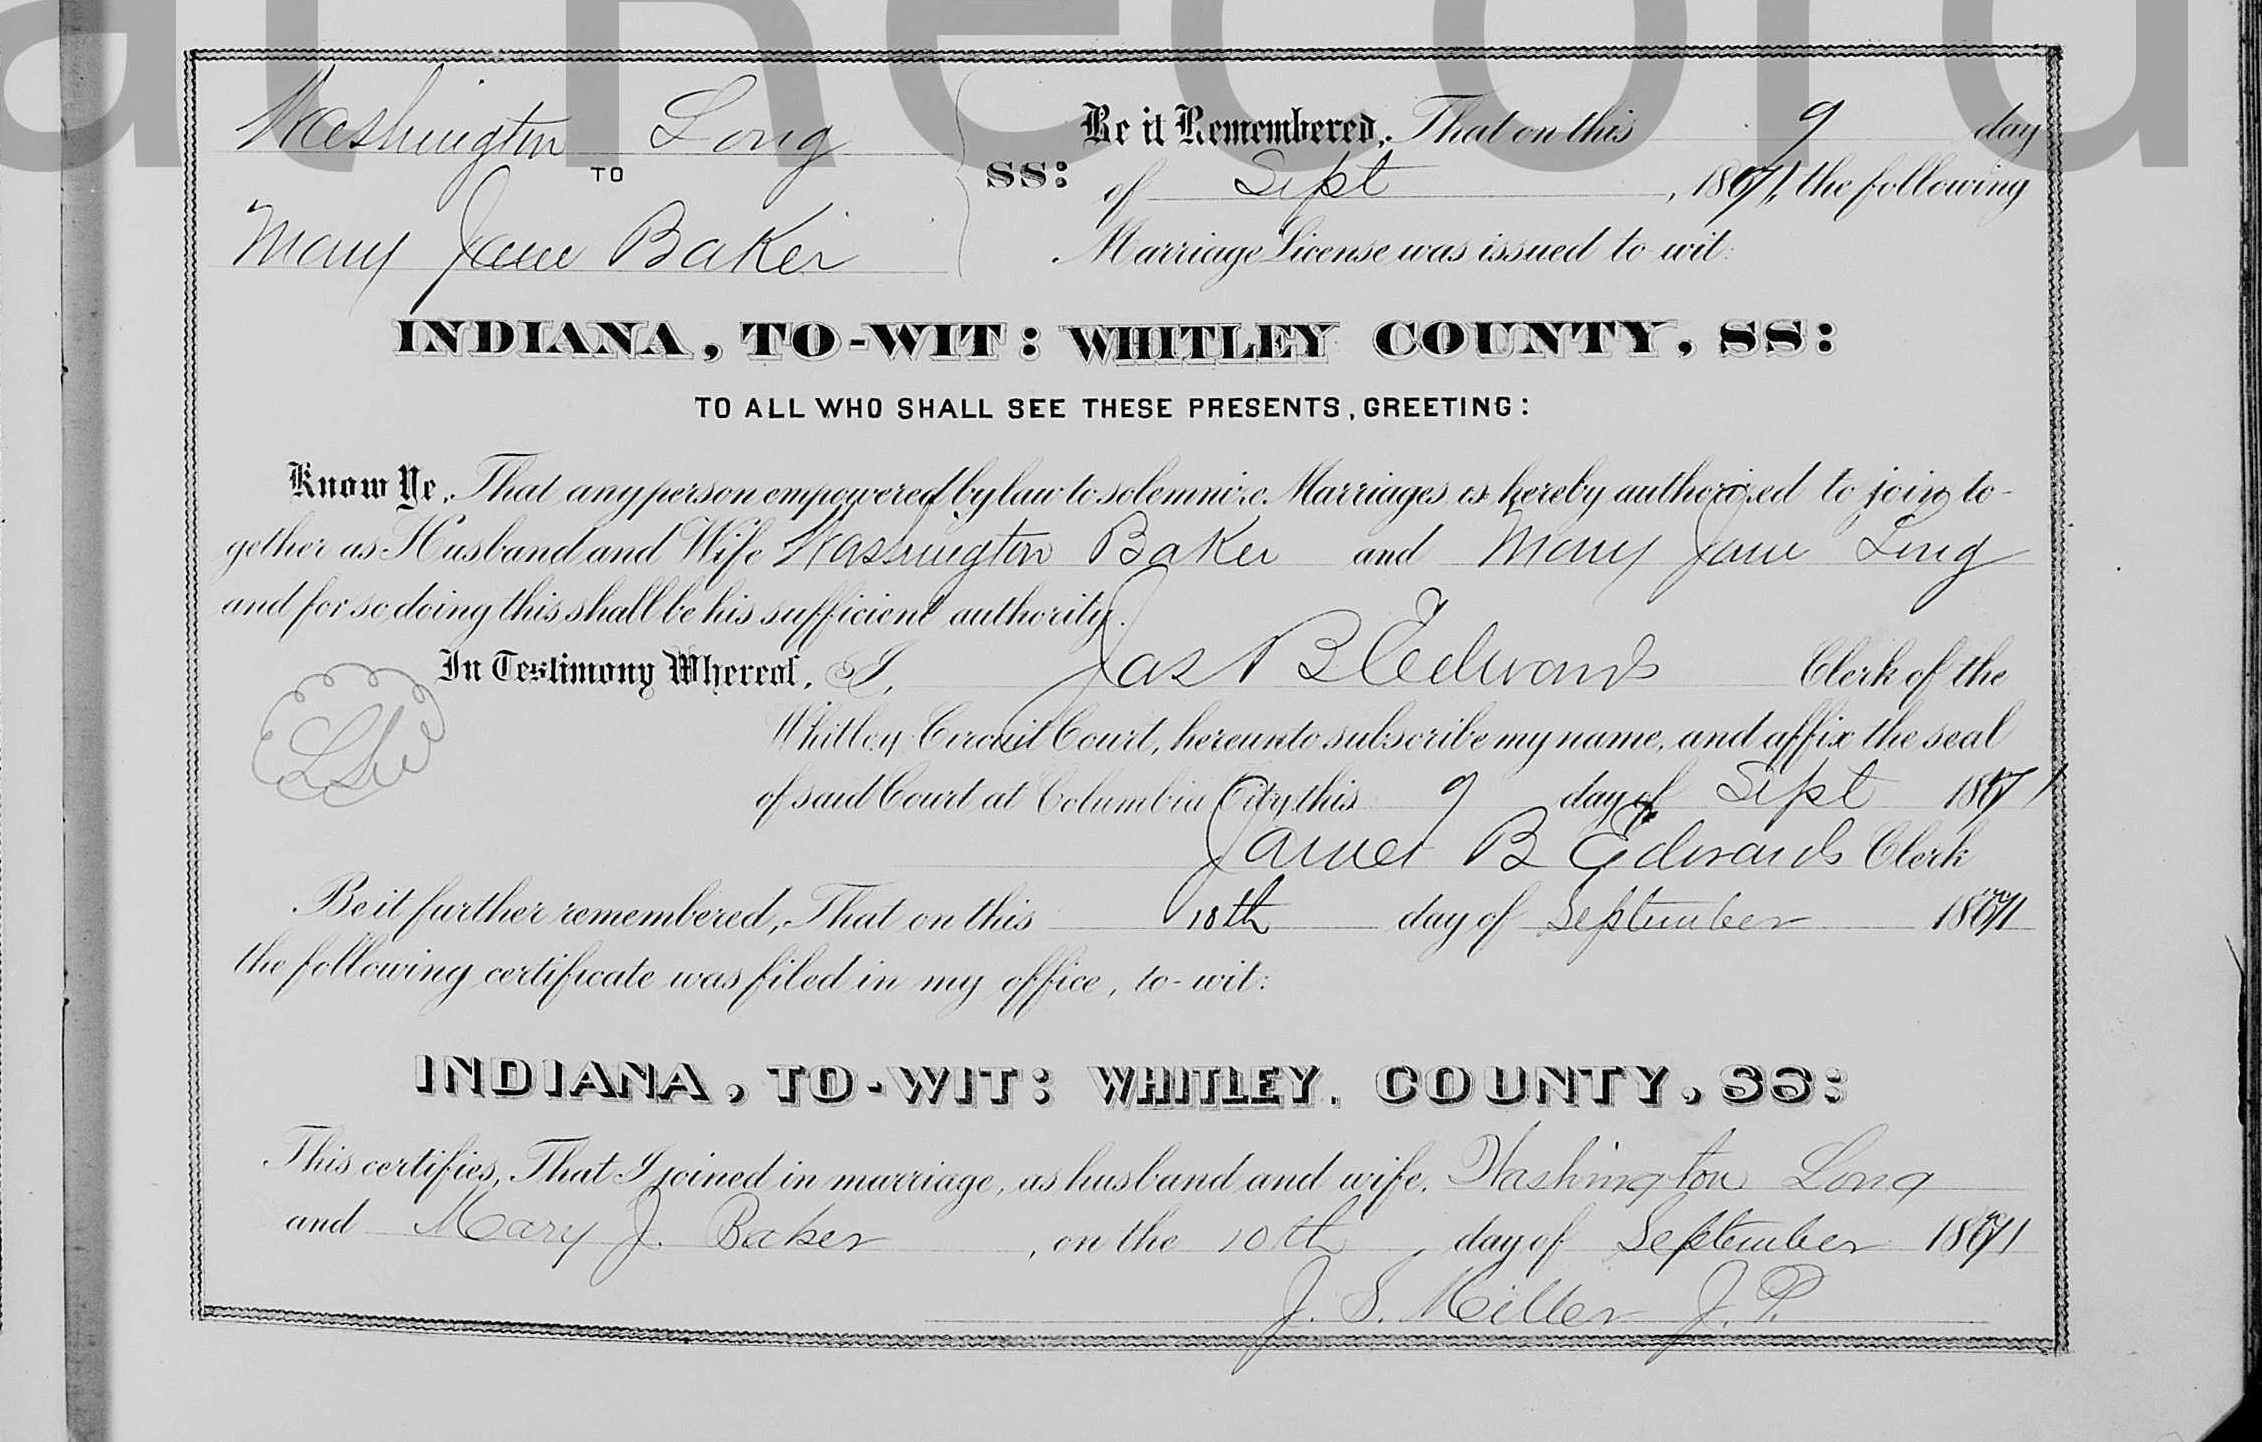 at Record
Washington Long
TO
Mary Jane Baker
SS:
Be it Remembered, That on this 9 day
of Sept, 1871, the following
Marriage License was issued to wit:
INDIANA, TO-WIT: WHITLEY COUNTY, SS:
TO ALL WHO SHALL SEE THESE PRESENTS, GREETING:
Know Ye, That any person empowered by law to solemnize Marriages is hereby authorized to join to-
gether as Husband and Wife Washington Baker and Mary Jane Long
and for so doing this shall be his sufficient authority.
In Testimony Whereof, I, Jas B Edwards Clerk of the
Whitley Circuit Court, hereunto subscribe my name, and affix the seal
of said Court at Columbia City this 9 day of Sept 1871
James B Edwards Clerk
Be it further remembered, That on this 18th day of September 1871
the following certificate was filed in my office, to-wit:
INDIANA, TO-WIT: WHITLEY COUNTY, SS:
This certifies, That I joined in marriage, as husband and wife, Washington Long
and Mary J. Baker, on the 10th, day of September 1871
J. S. Miller J. P.